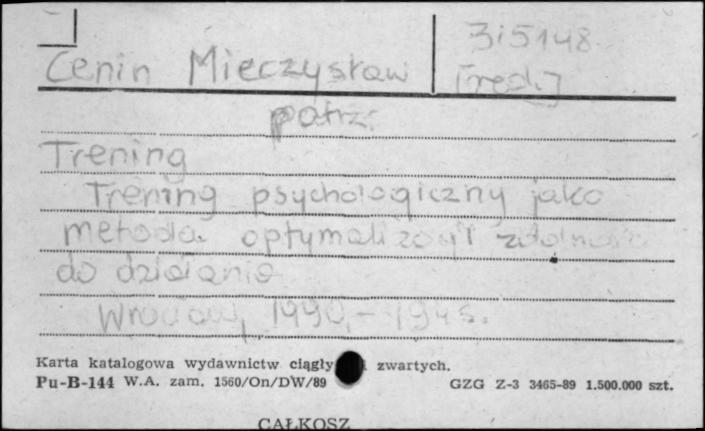 315148
Cenin Mieczysław [red.]
patrz:
Trening
Trening psychologiczny jako
metoda optymalizacji zdolności
do działania
Wrocław, 1990. - 194 s.
Karta katalogowa wydawnictw ciągły i zwartych.
Pu-B-144 W.A. zam. 1560/On/DW/89 GZG Z-3 3465-89 1.500.000 szt.
CAŁKOSZ